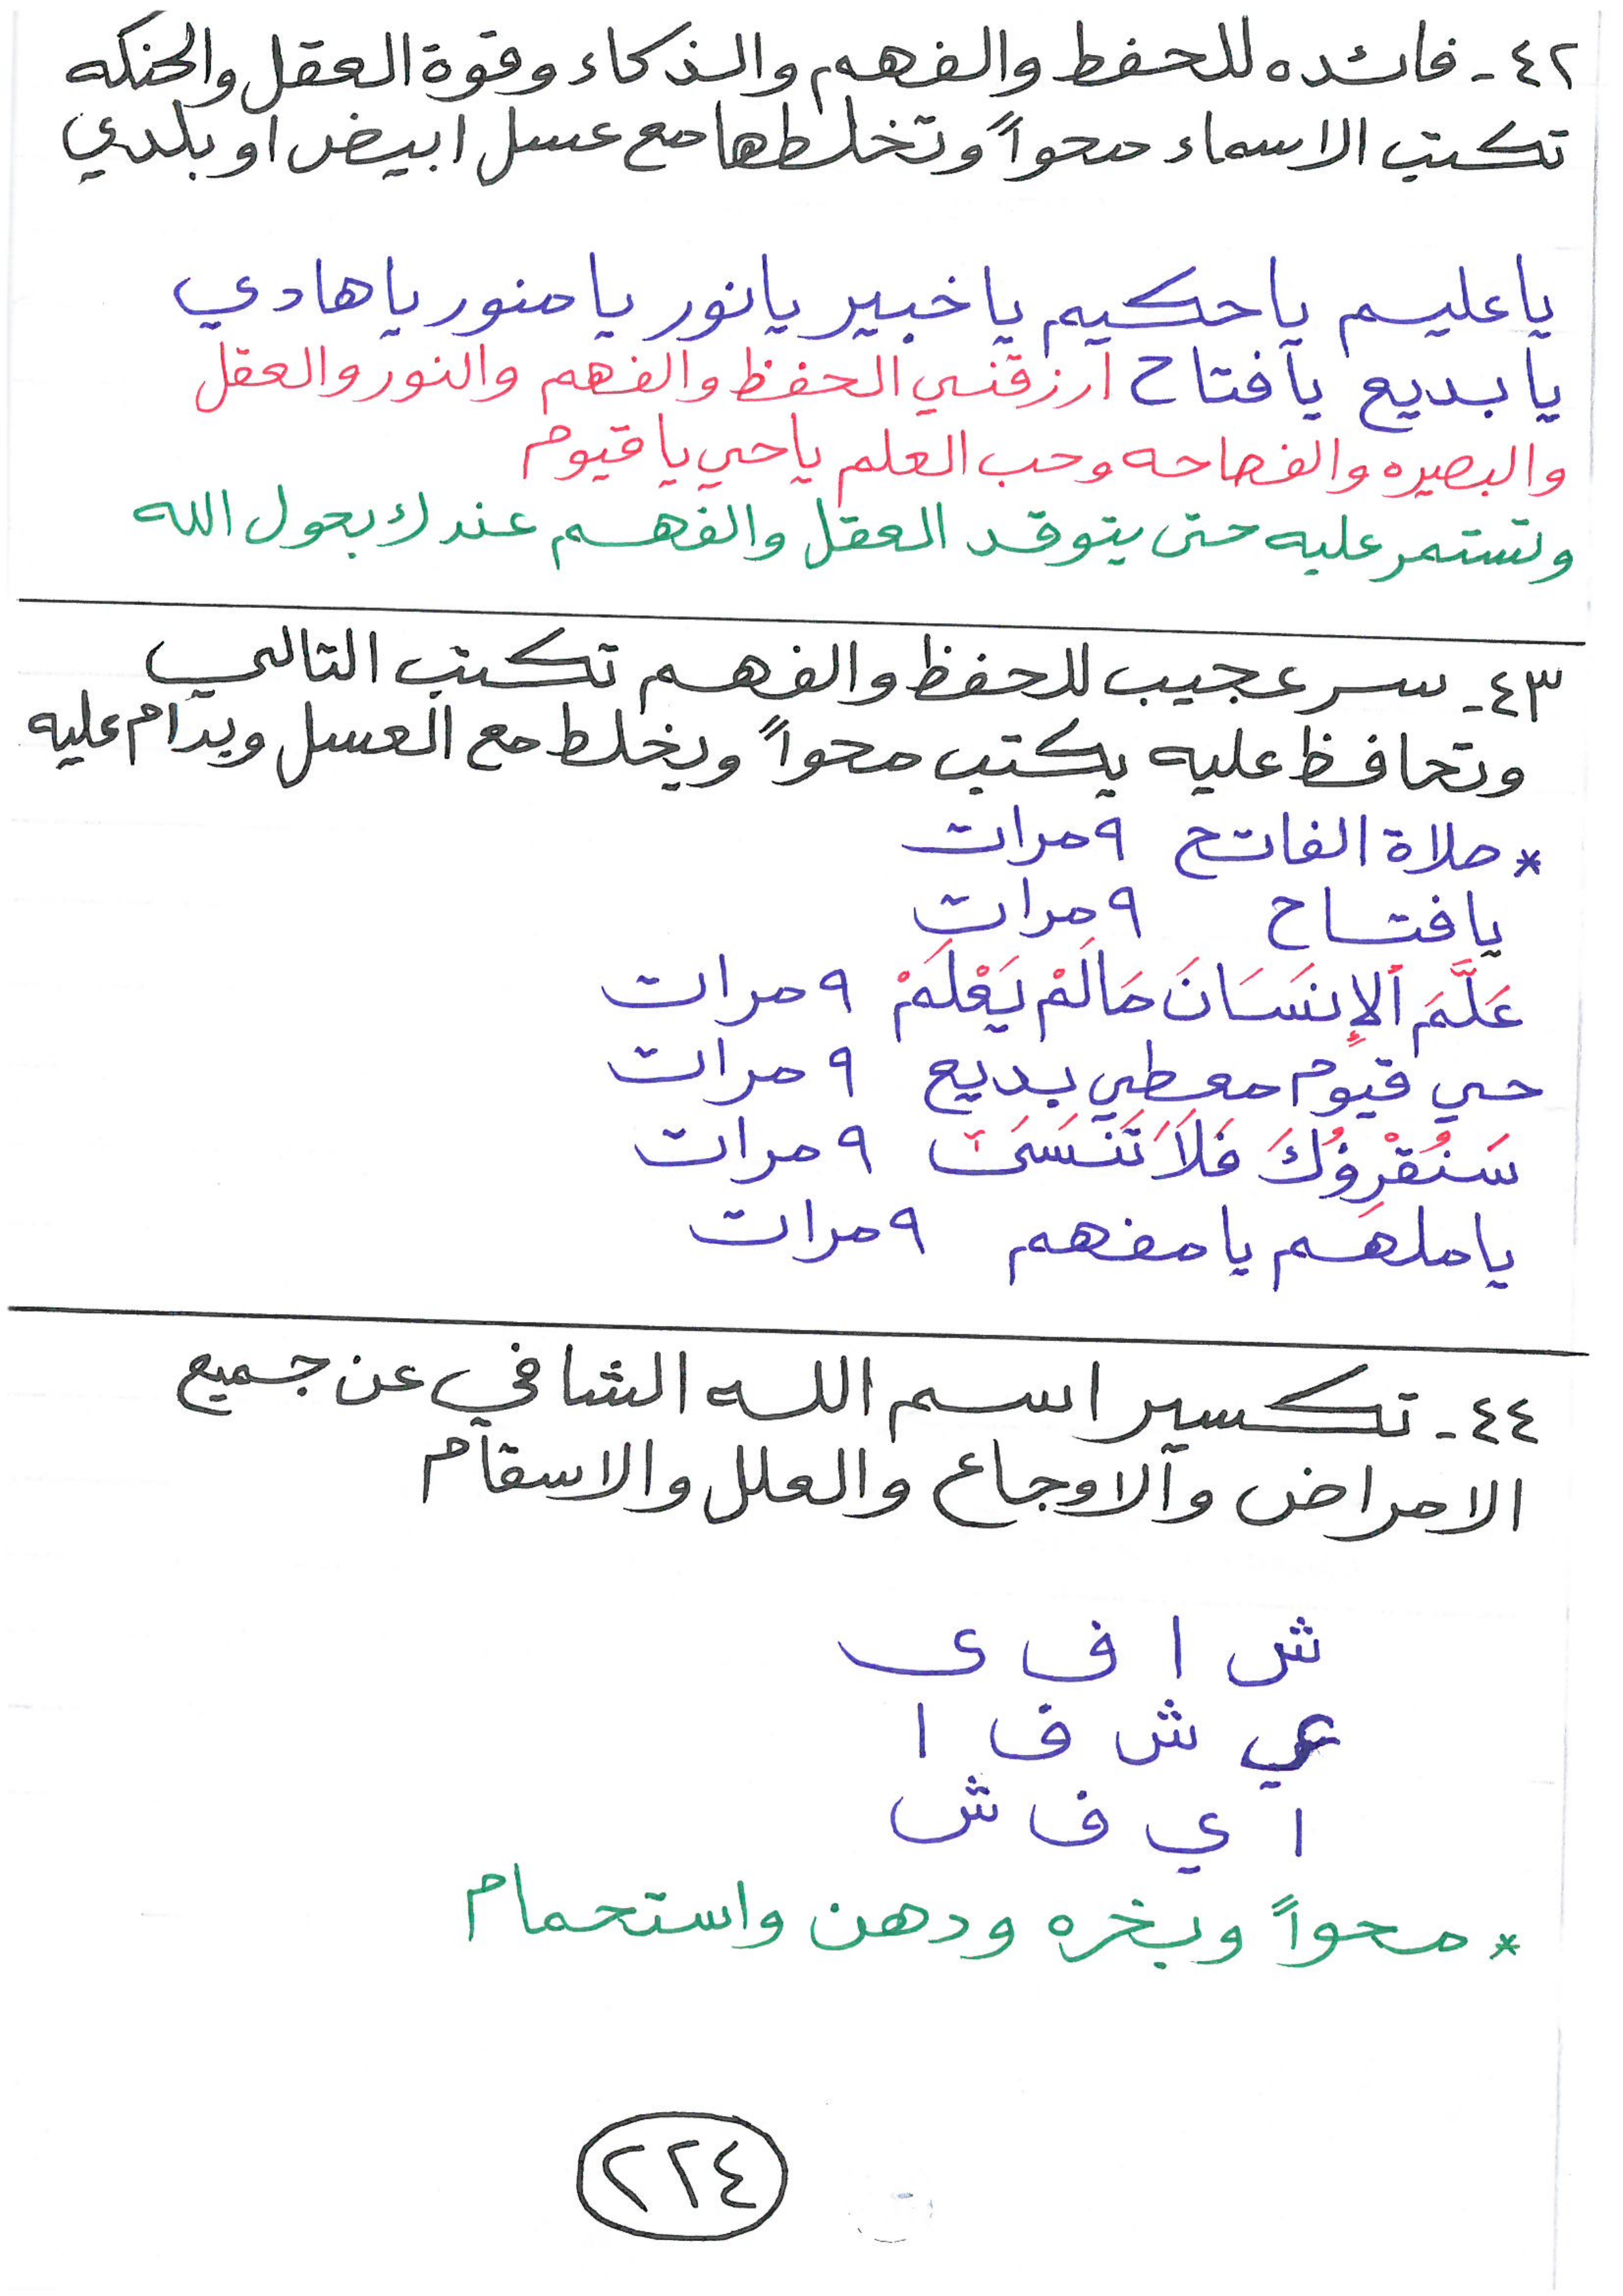 ٤٢ - فائده للحفظ والفهم والذكاء وقوة العقل والحنكه
تكتب الاسماء محواً وتخلطها مع عسل ابيض او بلدي
يا عليم يا حكيم يا خبير يا نور يا منور يا هادي
يا بديع يا فتاح ارزقني الحفظ والفهم والنور والعقل
والبصيره والفصاحه وحب العلم يا حي يا قيوم
وتستمر عليه حتى يتوقد العقل والفهم عندك بحول الله
٤٣ - سر عجيب للحفظ والفهم تكتب التالي
وتحافظ عليه يكتب محواً ويخلط مع العسل ويدام عليه
* صلاة الفاتح ٩ مرات
يا فتاح ٩ مرات
عَلَّمَ ٱلإِنسَانَ مَالَمْ يَعْلَمْ ٩ مرات
حي قيوم معطي بديع ٩ مرات
سَنُقْرِؤُكَ فَلَا تَنسَىٰٓ ٩ مرات
يا ملهم يا مفهم ٩ مرات
٤٤ - تكسير اسم الله الشافي عن جميع
الامراض والاوجاع والعلل والاسقام
ش ا ف ى
ي ش ف ا
ا ي ف ش
* محواً وبخره ودهن واستحمام
٢٢٤